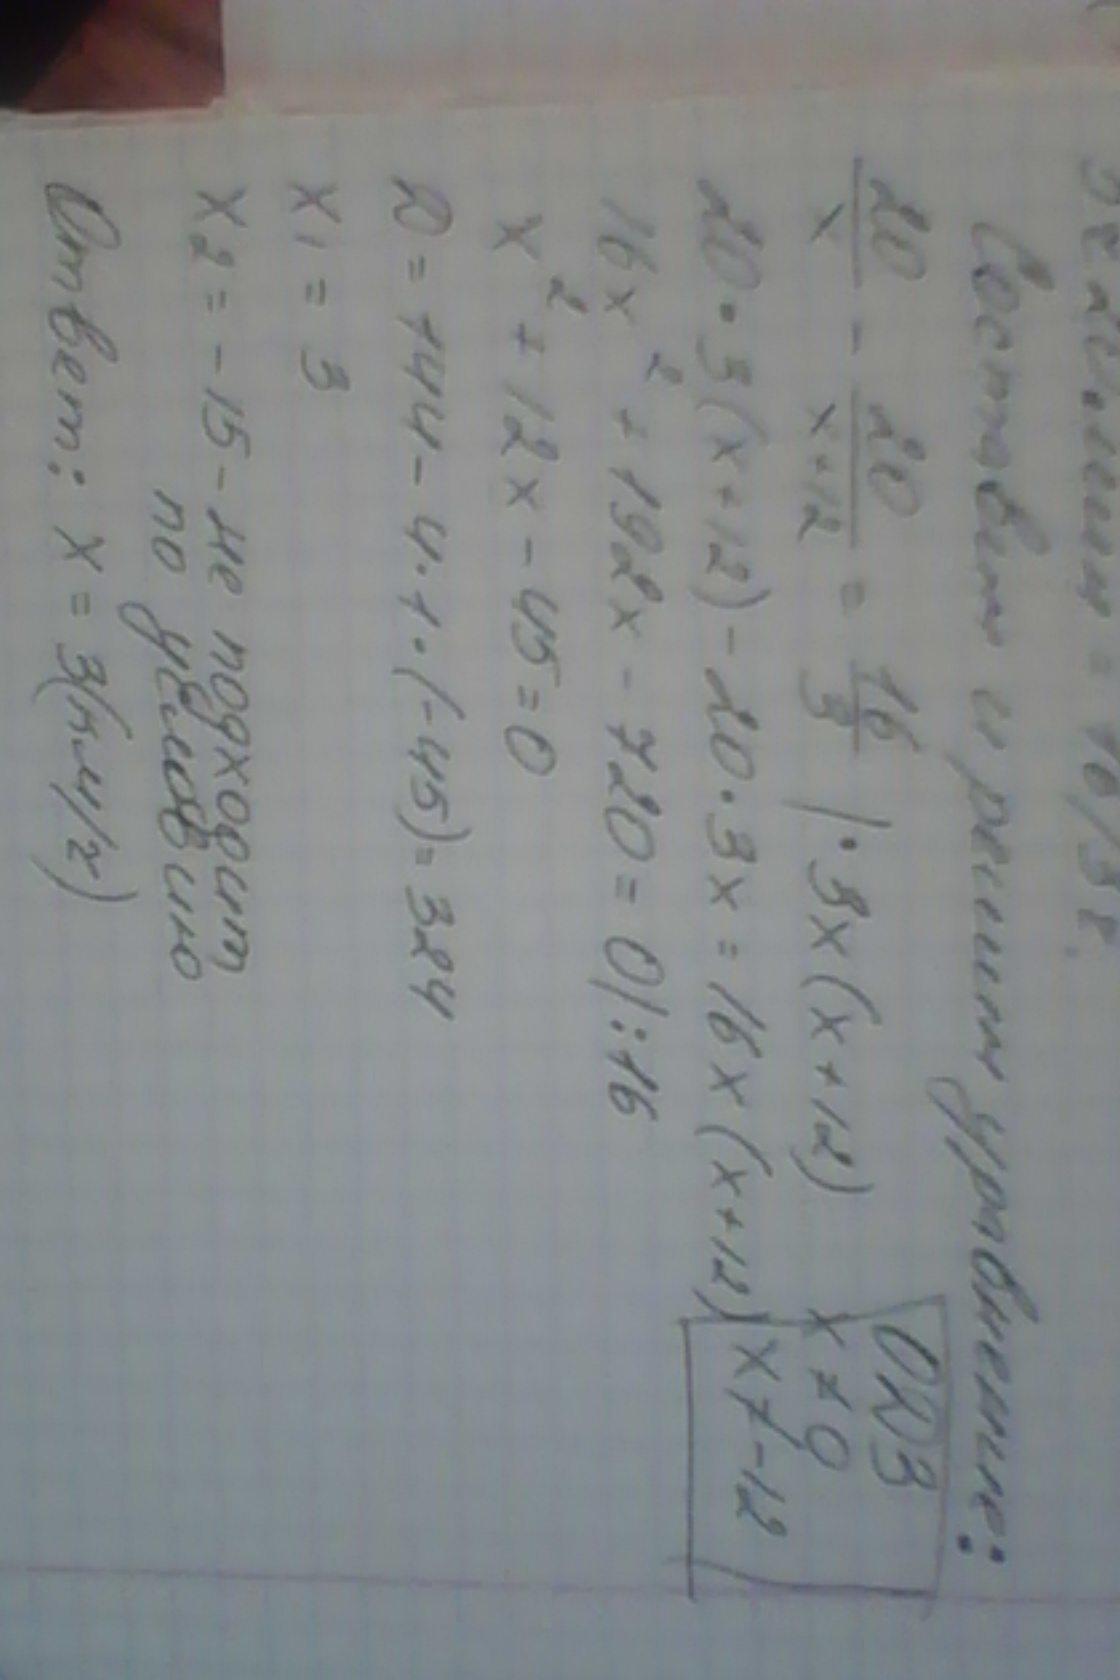 = 16/3 г.
Составим и решим уравнение:
20/x - 20/(x+12) = 16/3 | · 3x(x+12)
ОДЗ
x ≠ 0
x ≠ -12
20·3(x+12) - 20·3x = 16x(x+12)
16x² + 192x - 720 = 0 |:16
x² + 12x - 45 = 0
D = 144 - 4·1·(-45) = 324
x1 = 3
x2 = -15 - не подходит
по условию
Ответ: x = 3(км/ч)